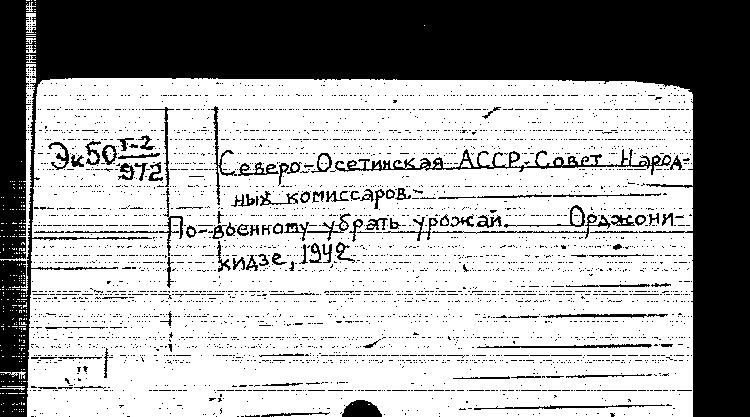 Эк50 Т-2/972
Северо-Осетинская АССР,-Совет Народ-
ных комиссаров.-
По-военному убрать урожай. Орджони-
кидзе, 1942